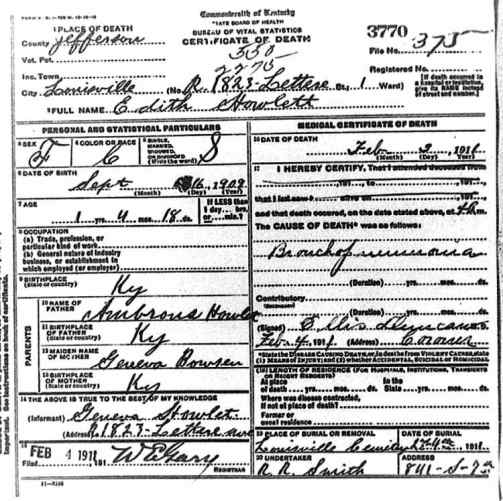 Commonwealth of Kentucky
STATE BOARD OF HEALTH
BUREAU OF VITAL STATISTICS
CERTIFICATE OF DEATH
1 PLACE OF DEATH
County Jefferson
Vot. Pct.
Inc. Town
City Louisville (No. R. 1823- St.; 1 Ward)
3770
File No. 375
Registered No.
[If death occurred in a hospital or institution, give its NAME instead of street and number.]
2 FULL NAME Edith Howlett
PERSONAL AND STATISTICAL PARTICULARS
3 SEX F
4 COLOR OR RACE C
5 SINGLE, MARRIED, WIDOWED, OR DIVORCED (Write the word) S
6 DATE OF BIRTH
Sept 16, 1909
(Month) (Day) (Year)
7 AGE
1 yrs. 4 mos. 18 ds.
If LESS than 1 day... hrs. or... min.?
8 OCCUPATION
(a) Trade, profession, or particular kind of work
(b) General nature of industry business, or establishment in which employed (or employer)
9 BIRTHPLACE
(State or country) Ky
PARENTS
10 NAME OF FATHER Ambrous Howlet
11 BIRTHPLACE OF FATHER
(State or country) Ky
12 MAIDEN NAME OF MOTHER Geneva Bowsen
13 BIRTHPLACE OF MOTHER
(State or country) Ky
14 THE ABOVE IS TRUE TO THE BEST OF MY KNOWLEDGE
(Informant) Geneva Howlet
(Address) R 1823-
15 FEB 4 1911
Filed 191
W E Gary
REGISTRAR
MEDICAL CERTIFICATE OF DEATH
16 DATE OF DEATH
Feb 2, 1911
(Month) (Day) (Year)
17 I HEREBY CERTIFY, That I attended deceased from
, 191 , to , 191 ,
that I last saw h alive on , 191 ,
and that death occurred, on the date stated above, at m.
The CAUSE OF DEATH* was as follows:
Bronchopneumonia
(Duration) yrs. mos. ds.
Contributory
(Secondary)
(Duration) yrs. mos. ds.
(Signed) Ellis Duncan
Feb. 4, 1911 (Address) Coroner
*State the DISEASE CAUSING DEATH, or, in deaths from VIOLENT CAUSES, state (1) MEANS OF INJURY; and (2) whether ACCIDENTAL, SUICIDAL or HOMICIDAL.
18 LENGTH OF RESIDENCE (FOR HOSPITALS, INSTITUTIONS, TRANSIENTS OR RECENT RESIDENTS)
At place of death yrs. mos. ds.
In the State yrs. mos. ds.
Where was disease contracted, if not at place of death?
Former or usual residence
19 PLACE OF BURIAL OR REMOVAL
DATE OF BURIAL
Louisville Cemetery
20 UNDERTAKER
R. R. Smith
ADDRESS
841-S-7th